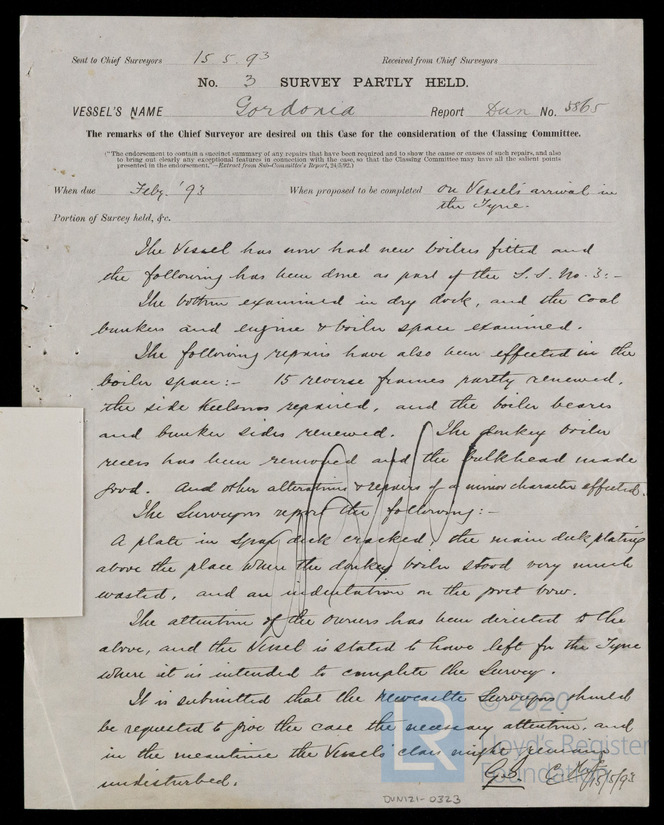 Sent to Chief Surveyors 15.5.93 Received from Chief Surveyors
No. 3 SURVEY PARTLY HELD.
VESSEL'S NAME Gordonia Report Dun No. 5865
The remarks of the Chief Surveyor are desired on this Case for the consideration of the Classing Committee.
("The endorsement to contain a succinct summary of any repairs that have been required and to shew the cause or causes of such repairs, and also
to bring out clearly any exceptional features in connection with the case, so that the Classing Committee may have all the salient points
presented in the endorsement."—Extract from Sub-Committee's Report, 24/5/92.)
When due Feby. '93 When proposed to be completed on Vessels arrival in
the Tyne.
Portion of Survey held, &c.
The Vessel has now had new boilers fitted and
the following has been done as part of the S.S. No. 3:-
The bottom examined in dry dock, and the coal
bunkers and engine & boiler space examined.
The following repairs have also been effected in the
boiler space:- 15 reverse frames partly renewed,
the side keelsons repaired, and the boiler bearers
and bunker sides renewed. The donkey boiler
recess has been removed and the bulkhead made
good. And other alterations & repairs of a minor character effected.
The Surveyors report the following:-
A plate in spar deck cracked, the main deck plating
above the place where the donkey boiler stood very much
wasted, and an indentation on the port bow.
The attention of the owners has been directed to the
above, and the Vessel is stated to have left for the Tyne
where it is intended to complete the Survey.
It is submitted that the Newcastle Surveyors should
be requested to give the case the necessary attention, and
in the meantime the Vessels' class might remain
undisturbed.
15/5/93
© 2020
Lloyd's Register
Foundation
LR
DUN121-0323